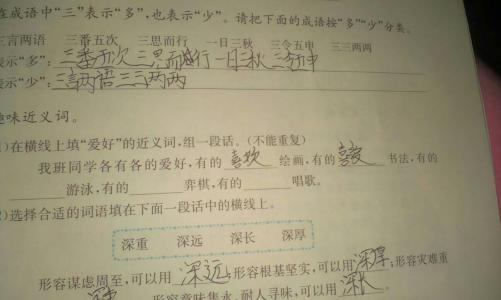 在成语中“三”表示“多”,也表示“少”。请把下面的成语按“多”“少”分类。
三言两语 三番五次 三思而行 一日三秋 三令五申 三三两两
表示“多”: 三番五次 三思而行 一日三秋 三令五申
表示“少”: 三言两语 三三两两
趣味近义词。
)在横线上填“爱好”的近义词,组一段话。(不能重复)
我班同学各有各的爱好,有的 喜欢 绘画,有的 喜爱 书法,有的
游泳,有的 弈棋,有的 唱歌。
)选择合适的词语填在下面一段话中的横线上。
深重 深远 深长 深厚
形容谋虑周至,可以用 深远;形容根基坚实,可以用 深厚;形容灾难重
形容意味隽永、耐人寻味,可以用 深长。